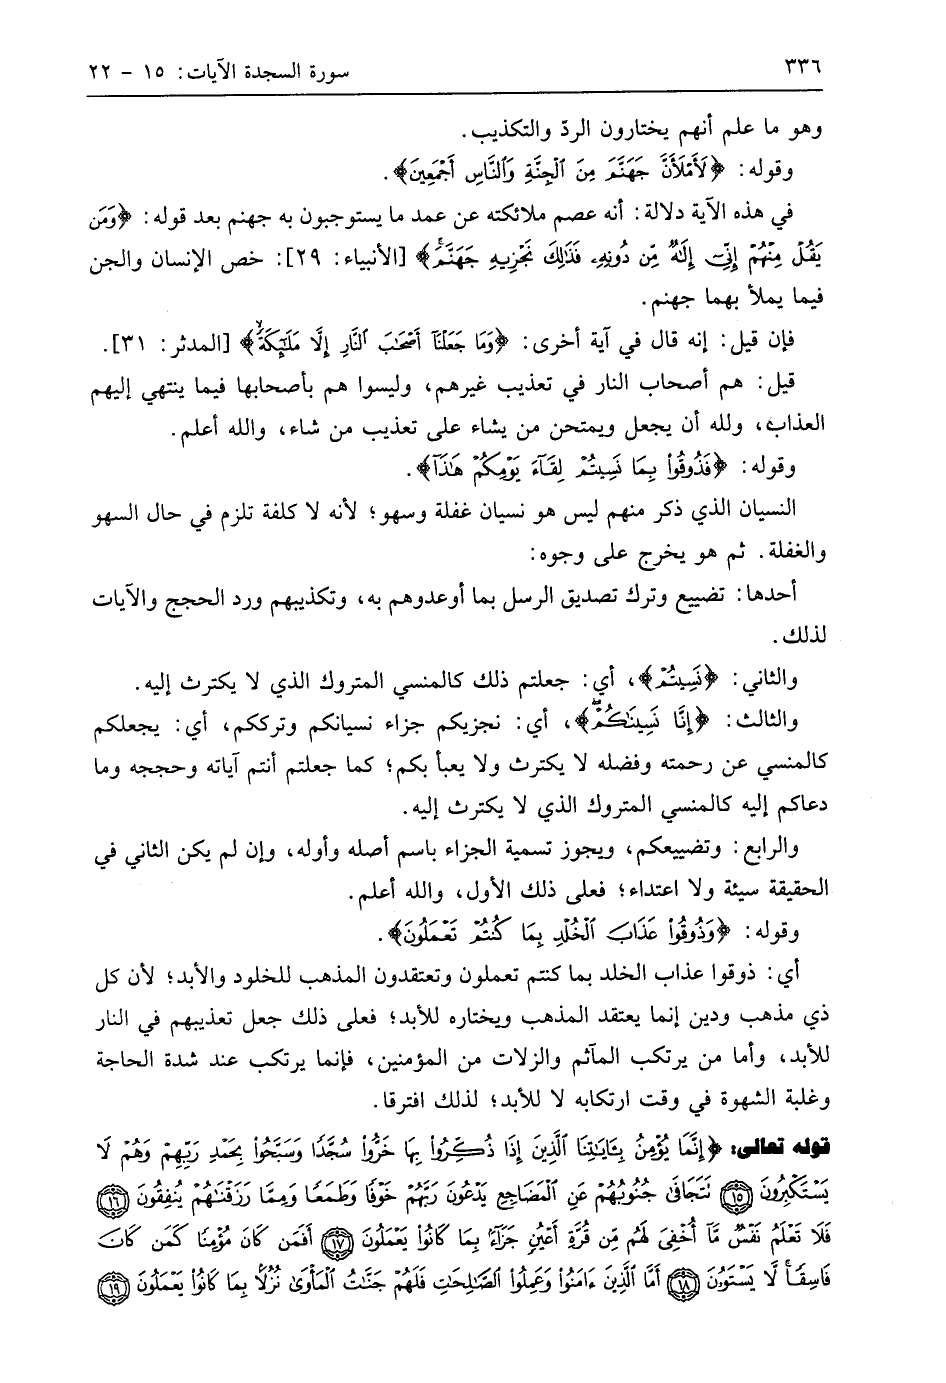 ٣٣٦ سورة السجدة الآيات: ١٥ - ٢٢
وهو ما علم أنهم يختارون الردّ والتكذيب.
وقوله: ﴿لَأَمْلَأَنَّ جَهَنَّمَ مِنَ ٱلْجِنَّةِ وَٱلنَّاسِ أَجْمَعِينَ﴾.
في هذه الآية دلالة: أنه عصم ملائكته عن عمد ما يستوجبون به جهنم بعد قوله: ﴿وَمَن
يَقُلْ مِنْهُمْ إِنِّىٓ إِلَٰهٌ مِّن دُونِهِۦ فَذَٰلِكَ نَجْزِيهِ جَهَنَّمَۚ﴾ [الأنبياء: ٢٩]: خص الإنسان والجن
فيما يملأ بهما جهنم.
فإن قيل: إنه قال في آية أخرى: ﴿وَمَا جَعَلْنَآ أَصْحَٰبَ ٱلنَّارِ إِلَّا مَلَٰٓئِكَةًۙ﴾ [المدثر: ٣١].
قيل: هم أصحاب النار في تعذيب غيرهم، وليسوا هم بأصحابها فيما ينتهي إليهم
العذاب، ولله أن يجعل ويمتحن من يشاء على تعذيب من شاء، والله أعلم.
وقوله: ﴿فَذُوقُوا۟ بِمَا نَسِيتُمْ لِقَآءَ يَوْمِكُمْ هَٰذَآ﴾.
النسيان الذي ذكر منهم ليس هو نسيان غفلة وسهو؛ لأنه لا كلفة تلزم في حال السهو
والغفلة. ثم هو يخرج على وجوه:
أحدها: تضييع وترك تصديق الرسل بما أوعدوهم به، وتكذيبهم ورد الحجج والآيات
لذلك.
والثاني: ﴿نَسِيتُمْ﴾، أي: جعلتم ذلك كالمنسي المتروك الذي لا يكترث إليه.
والثالث: ﴿إِنَّا نَسِينَٰكُمْۖ﴾، أي: نجزيكم جزاء نسيانكم وترككم، أي: يجعلكم
كالمنسي عن رحمته وفضله لا يكترث ولا يعبأ بكم؛ كما جعلتم أنتم آياته وحججه وما
دعاكم إليه كالمنسي المتروك الذي لا يكترث إليه.
والرابع: وتضييعكم، ويجوز تسمية الجزاء باسم أصله وأوله، وإن لم يكن الثاني في
الحقيقة سيئة ولا اعتداء؛ فعلى ذلك الأول، والله أعلم.
وقوله: ﴿وَذُوقُوا۟ عَذَابَ ٱلْخُلْدِ بِمَا كُنتُمْ تَعْمَلُونَ﴾.
أي: ذوقوا عذاب الخلد بما كنتم تعملون وتعتقدون المذهب للخلود والأبد؛ لأن كل
ذي مذهب ودين إنما يعتقد المذهب ويختاره للأبد؛ فعلى ذلك جعل تعذيبهم في النار
للأبد، وأما من يرتكب المآثم والزلات من المؤمنين، فإنما يرتكب عند شدة الحاجة
وغلبة الشهوة في وقت ارتكابه لا للأبد؛ لذلك افترقا.
قوله تعالى: ﴿إِنَّمَا يُؤْمِنُ بِـَٔايَٰتِنَا ٱلَّذِينَ إِذَا ذُكِّرُوا۟ بِهَا خَرُّوا۟ سُجَّدًا وَسَبَّحُوا۟ بِحَمْدِ رَبِّهِمْ وَهُمْ لَا
يَسْتَكْبِرُونَ ١٥ تَتَجَافَىٰ جُنُوبُهُمْ عَنِ ٱلْمَضَاجِعِ يَدْعُونَ رَبَّهُمْ خَوْفًا وَطَمَعًا وَمِمَّا رَزَقْنَٰهُمْ يُنفِقُونَ ١٦
فَلَا تَعْلَمُ نَفْسٌ مَّآ أُخْفِىَ لَهُم مِّن قُرَّةِ أَعْيُنٍ جَزَآءًۢ بِمَا كَانُوا۟ يَعْمَلُونَ ١٧ أَفَمَن كَانَ مُؤْمِنًا كَمَن كَانَ
فَاسِقًاۚ لَّا يَسْتَوُۥنَ ١٨ أَمَّا ٱلَّذِينَ ءَامَنُوا۟ وَعَمِلُوا۟ ٱلصَّٰلِحَٰتِ فَلَهُمْ جَنَّٰتُ ٱلْمَأْوَىٰ نُزُلًۢا بِمَا كَانُوا۟ يَعْمَلُونَ ١٩